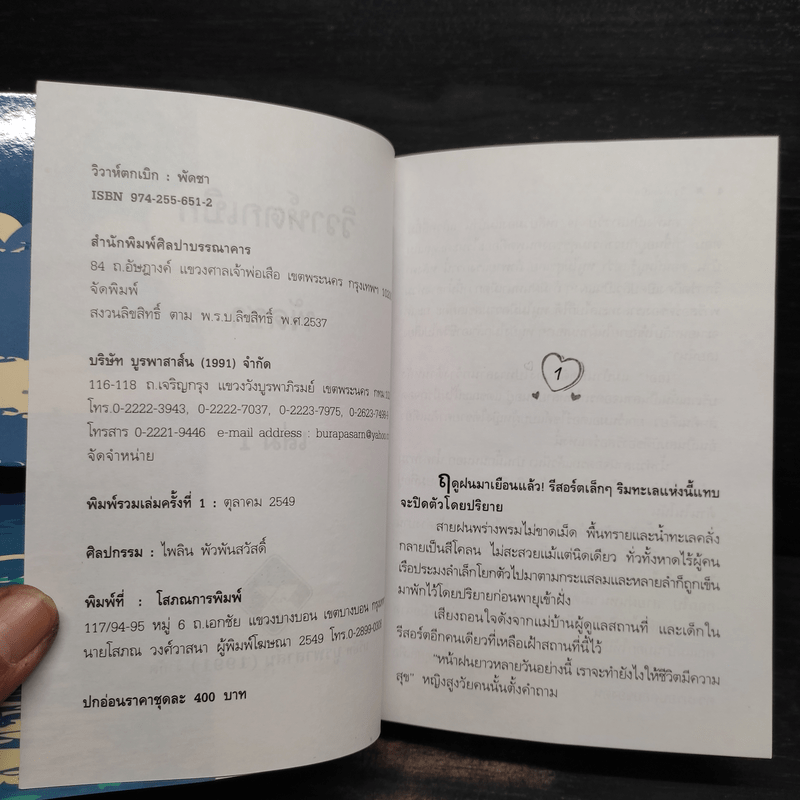 วิวาห์ตกเบิก : พัดชา
ISBN 974-255-651-2
สำนักพิมพ์ศิลปาบรรณาคาร
84 ถ.อัษฎางค์ แขวงศาลเจ้าพ่อเสือ เขตพระนคร กรุงเทพฯ
จัดพิมพ์
สงวนลิขสิทธิ์ ตาม พ.ร.บ.ลิขสิทธิ์ พ.ศ.2537
บริษัท บูรพาสาส์น (1991) จำกัด
116-118 ถ.เจริญกรุง แขวงวังบูรพาภิรมย์ เขตพระนคร กทม.
โทร.0-2222-3943, 0-2222-7037, 0-2223-7975,
โทรสาร 0-2221-9446 e-mail address : burapasarn@yahoo.
จัดจำหน่าย
พิมพ์รวมเล่มครั้งที่ 1 : ตุลาคม 2549
ศิลปกรรม : ไพลิน พัวพันสวัสดิ์
พิมพ์ที่ : โสภณการพิมพ์
117/94-95 หมู่ 6 ถ.เอกชัย แขวงบางบอน เขตบางบอน
นายโสภณ วงศ์วาสนา ผู้พิมพ์โฆษณา 2549 โทร.0-2899-
ปกอ่อนราคาชุดละ 400 บาท
1
ฤดูฝนมาเยือนแล้ว! รีสอร์ตเล็กๆ ริมทะเลแห่งนี้แทบ
จะปิดตัวโดยปริยาย
สายฝนพร่างพรมไม่ขาดเม็ด พื้นทรายและน้ำทะเลคลั่ง
กลายเป็นสีโคลน ไม่สะสวยแม้แต่นิดเดียว ทั่วทั้งหาดไร้ผู้คน
เรือประมงลำเล็กโยกตัวไปมาตามกระแสลมและหลายลำก็ถูกเข็น
มาพักไว้โดยปริยายก่อนพายุเข้าฝั่ง
เสียงถอนใจดังจากแม่บ้านผู้ดูแลสถานที่ และเด็กใน
รีสอร์ตอีกคนเดียวที่เหลือเฝ้าสถานที่นี้ไว้
"หน้าฝนยาวหลายวันอย่างนี้ เราจะทำยังไงให้ชีวิตมีความ
สุข" หญิงสูงวัยคนนั้นตั้งคำถาม